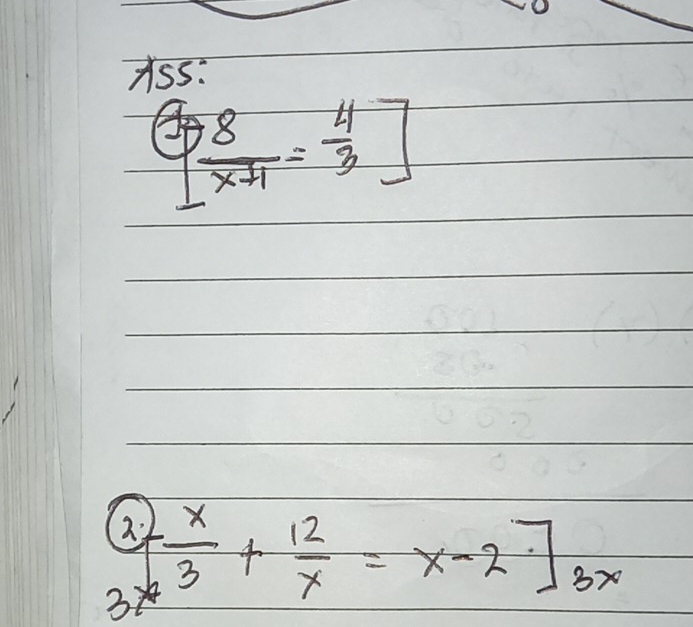 Ass:
1. [8/(x+1) = 4/3]
2. 3x[x/3 + 12/x = x-2.]3x